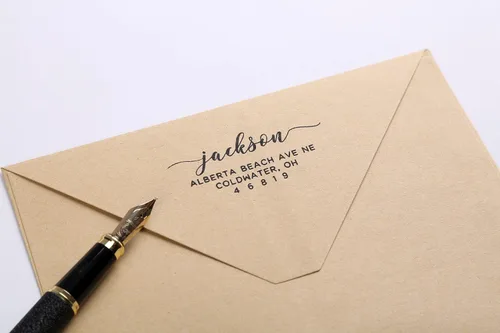 jackson
ALBERTA BEACH AVE NE
COLDWATER, OH
46819